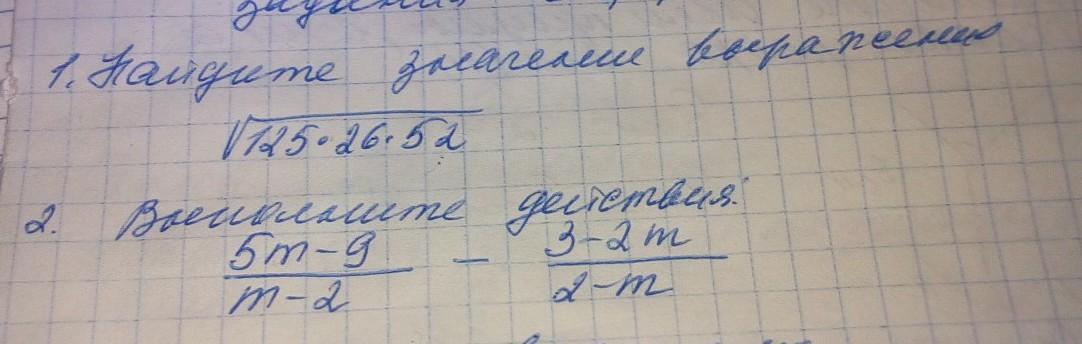 задания
1. Найдите значение выражения
√125·26·52
2. Выполните действия:
5m-9 / m-2 - 3-2m / 2-m